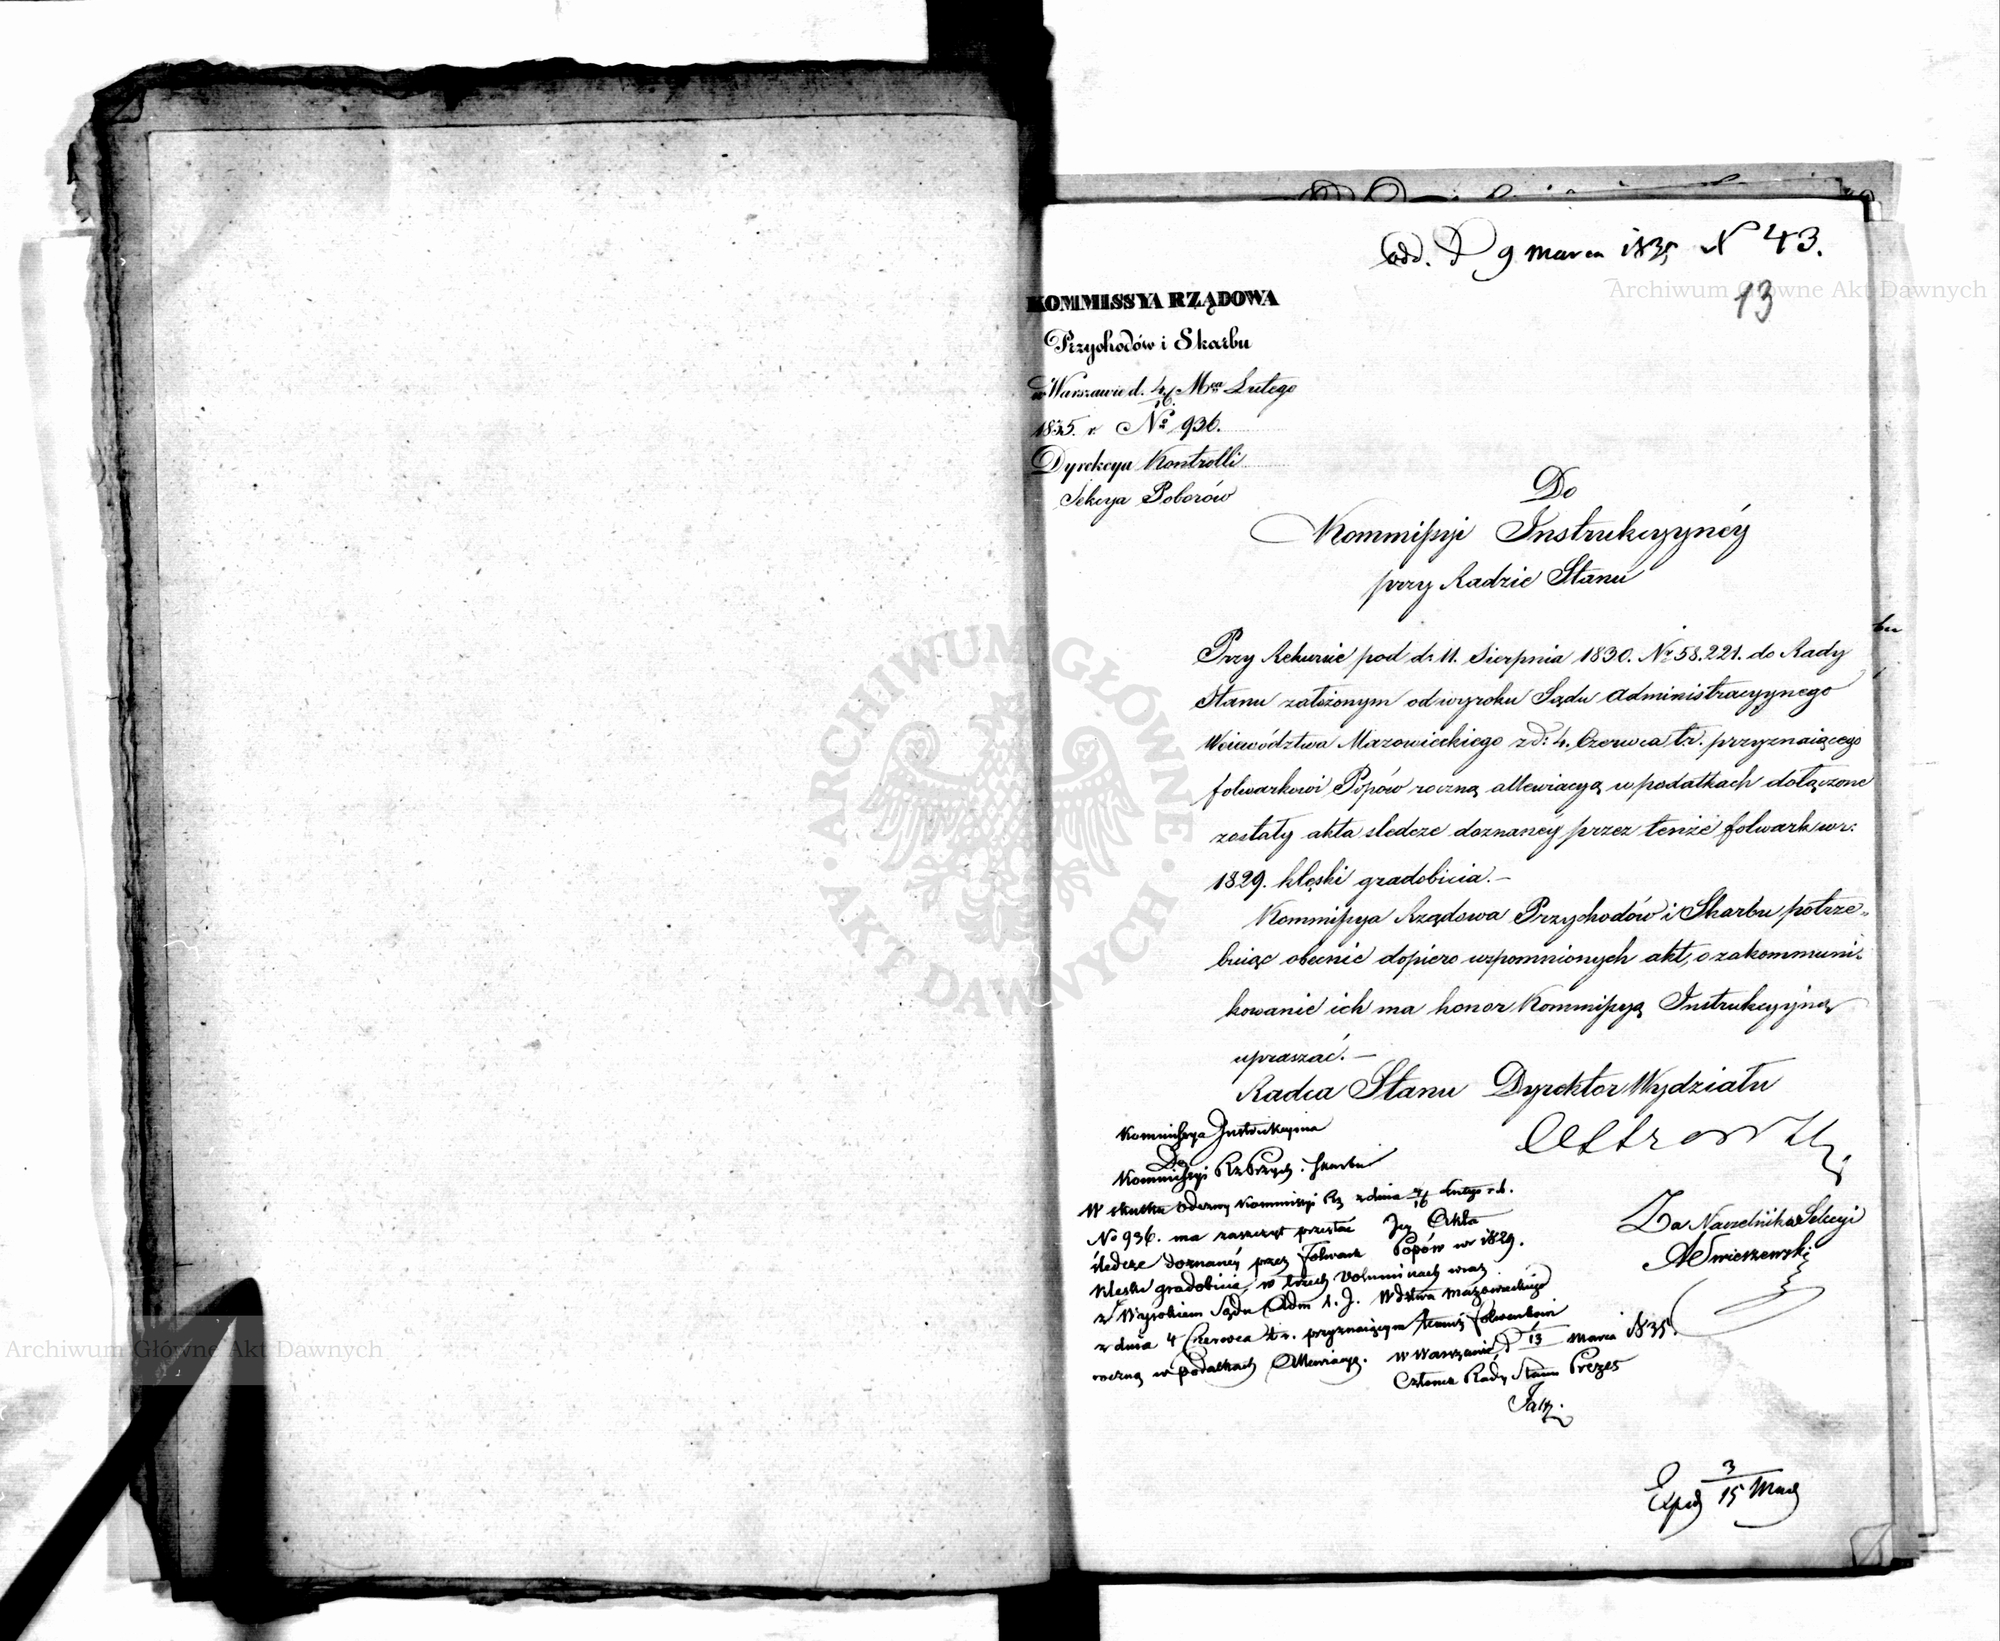 odd. d 9 marca 1835 N 43.
13
KOMMISSYA RZĄDOWA
Przychodów i Skarbu
w Warszawie d. 4/16. Mca Lutego
1835. r. No 936.
Dyrekcya Kontrolli
Sekcya Poborów
Do
Kommissyi Instrukcyynéy
przy Radzie Stanu
Przy Rekursie pod d: 11. Sierpnia 1830. Nr 58.221. do Rady
Stanu założonym od wyroku Sądu Administracyynego
Woiewództwa Mazowieckiego z d: 4. Czerwca t.r. przyznaiącego
folwarkowi Popów roczną allewiacyą w podatkach dołączone
zostały akta śledcze doznanéy przez tenże folwark w r:
1829. klęski gradobicia.—
Kommissya Rządowa Przychodów i Skarbu potrze-
buiąc obecnie dopiero wspomnionych akt, o zakommuni-
kowanie ich ma honor Kommissyą Instrukcyyną
upraszać.—
Radca Stanu Dyrektor Wydziału
Za Naczelnika Sekcyi
Kommissya Instrukcyina
Do
Kommissyi Rz Przych. Skarbu
W skutku odezwy Kommissyi Rz z dnia 4/16 Lutego r.b.
No 936. ma zaszczyt przesłać Jey Akta
śledcze doznanéy przez Folwark Popów w r 1829.
klęski gradobicia, w trzech Voluminach wraz
z Wyrokiem Sądu Adm 1. J. Wdztwa Mazowieckiego
z dnia 4 Czerwca t.r. przyznaiącym temuż folwarkowi
roczną w podatkach Allewiacyą. w Warszawie d 13 marca 1835.
Członek Rady Stanu Prezes
Exped 3/15 Marca
bu
ARCHIWUM GŁÓWNE AKT DAWNYCH
Archiwum Główne Akt Dawnych
Archiwum Główne Akt Dawnych